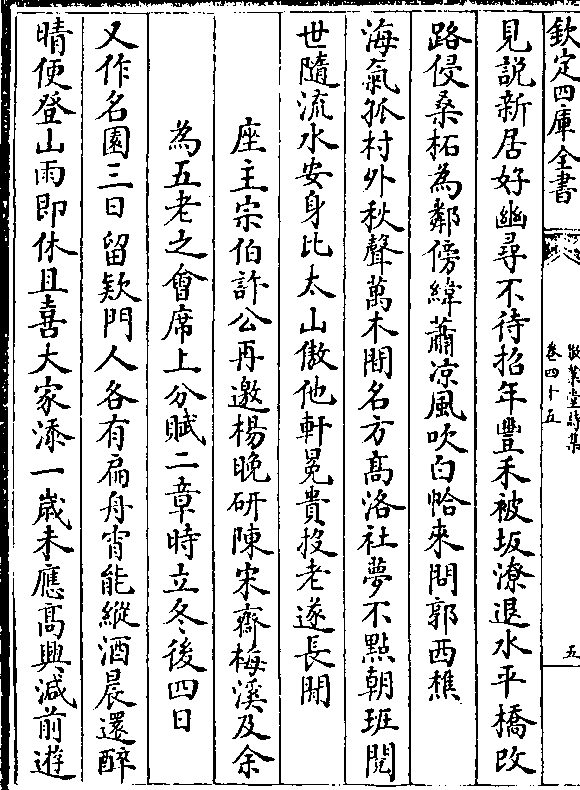 欽定四庫全書
敬業堂詩集
卷四十五
五
見説新居好幽尋不待招年豐禾被坂潦退水平橋改
路侵桑柘為鄰傍緯蕭凉風吹白帢來問郭西樵
海氣孤村外秋聲萬木間名方髙洛社夢不㸃朝班閲
世隨流水安身比太山傲他軒冕貴投老遂長閒
座主宗伯許公再邀楊晚研陳宋齋梅溪及余
為五老之會席上分賦二章時立冬後四日
又作名園三日留欵門人各有扁舟宵能縱酒晨還醉
晴便登山雨即休且喜大家添一嵗未應髙興減前遊